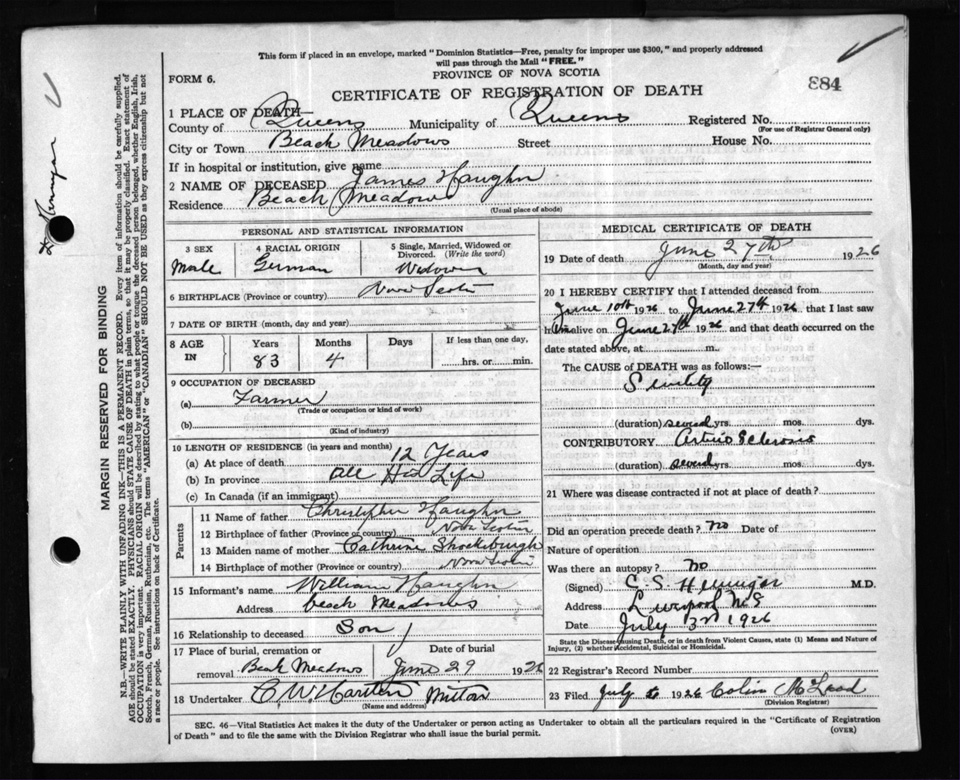 This form if placed in an envelope, marked "Dominion Statistics—Free, penalty for improper use $300," and properly addressed
will pass through the Mail "FREE."
FORM 6.
PROVINCE OF NOVA SCOTIA
884
CERTIFICATE OF REGISTRATION OF DEATH
1 PLACE OF DEATH—
County of Queens Municipality of Queens Registered No.
(For use of Registrar General only)
City or Town Beach Meadows Street House No.
If in hospital or institution, give name
2 NAME OF DECEASED James Haughn
Residence Beach Meadows
(Usual place of abode)
PERSONAL AND STATISTICAL INFORMATION
3 SEX 4 RACIAL ORIGIN 5 Single, Married, Widowed or
Divorced. (Write the word)
Male German Widower
6 BIRTHPLACE (Province or country) Nova Scotia
7 DATE OF BIRTH (month, day and year)
8 AGE IN Years Months Days If less than one day,
83 4 hrs. or min.
9 OCCUPATION OF DECEASED
(a) Farmer
(Trade or occupation or kind of work)
(b)
(Kind of industry)
10 LENGTH OF RESIDENCE (in years and months)
(a) At place of death 12 Years
(b) In province All His Life
(c) In Canada (if an immigrant)
Parents
11 Name of father Christopher Haughn
12 Birthplace of father (Province or country) Nova Scotia
13 Maiden name of mother Cathrine
14 Birthplace of mother (Province or country) Nova Scotia
15 Informant's name William Haughn
Address beach Meadows
16 Relationship to deceased Son
17 Place of burial, cremation or Date of burial
removal Beach Meadows June 29 1926
18 Undertaker C. W. Milton
(Name and address)
MEDICAL CERTIFICATE OF DEATH
19 Date of death June 27th 1926
(Month, day and year)
20 I HEREBY CERTIFY that I attended deceased from
June 10th 1926 to June 27th 1926 that I last saw
him alive on June 27th 1926 and that death occurred on the
date stated above, at m.
The CAUSE of DEATH was as follows:—
Senility
(duration) several yrs. mos. dys.
CONTRIBUTORY Arterio Sclerosis
(duration) several yrs. mos. dys.
21 Where was disease contracted if not at place of death?
Did an operation precede death? no Date of
Nature of operation
Was there an autopsy? no
(Signed) C. S. Hennigar M.D.
Address Liverpool N.S
Date July 3rd 1926
State the Disease causing Death, or in death from Violent Causes, state (1) Means and Nature of
Injury, (2) whether Accidental, Suicidal or Homicidal.
22 Registrar's Record Number
23 Filed July 1926 Colin McLeod
(Division Registrar)
SEC. 46—Vital Statistics Act makes it the duty of the Undertaker or person acting as Undertaker to obtain all the particulars required in the "Certificate of Registration
of Death" and to file the same with the Division Registrar who shall issue the burial permit.
(OVER)
MARGIN RESERVED FOR BINDING
N.B.—WRITE PLAINLY WITH UNFADING INK—THIS IS A PERMANENT RECORD. Every item of information should be carefully supplied.
AGE should be stated EXACTLY. PHYSICIANS should STATE CAUSE OF DEATH in plain terms, so that it may be properly classified. Exact statement of
OCCUPATION is very important. RACIAL ORIGIN will be described by stating to what people or tongue the deceased person belonged, whether English, Irish,
Scotch, French, German, Russian, Ruthenian, etc. The terms "AMERICAN" or "CANADIAN" SHOULD NOT BE USED as they express citizenship but not
a race or people. See instructions on back of Certificate.